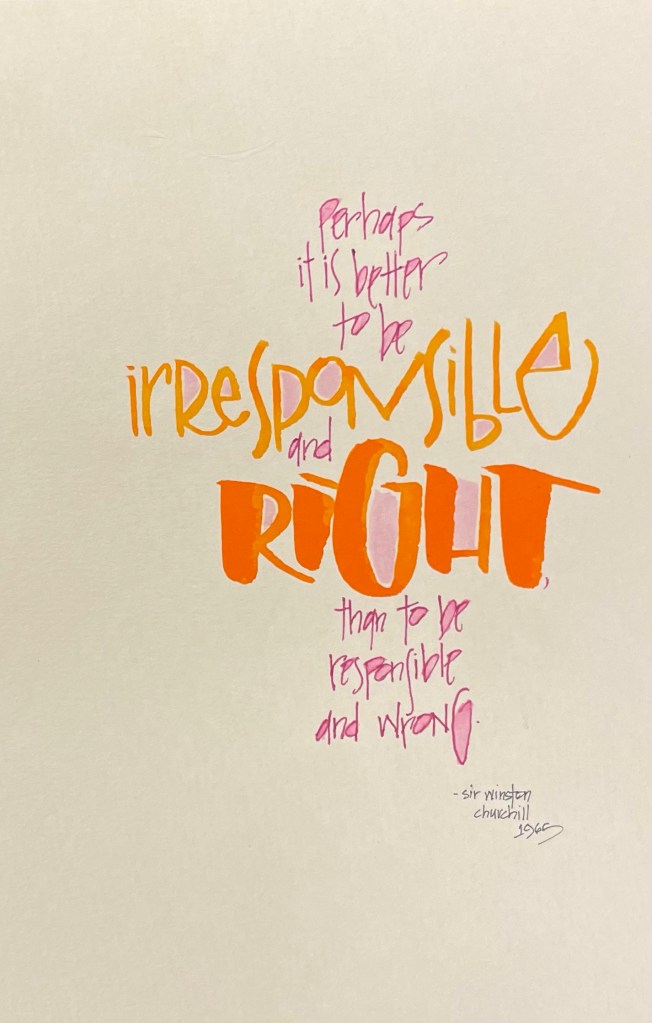 perhaps
it is better
to be
irresponsible
and
RIGHT,
than to be
responsible
and wrong.
- sir winston
churchill
1965